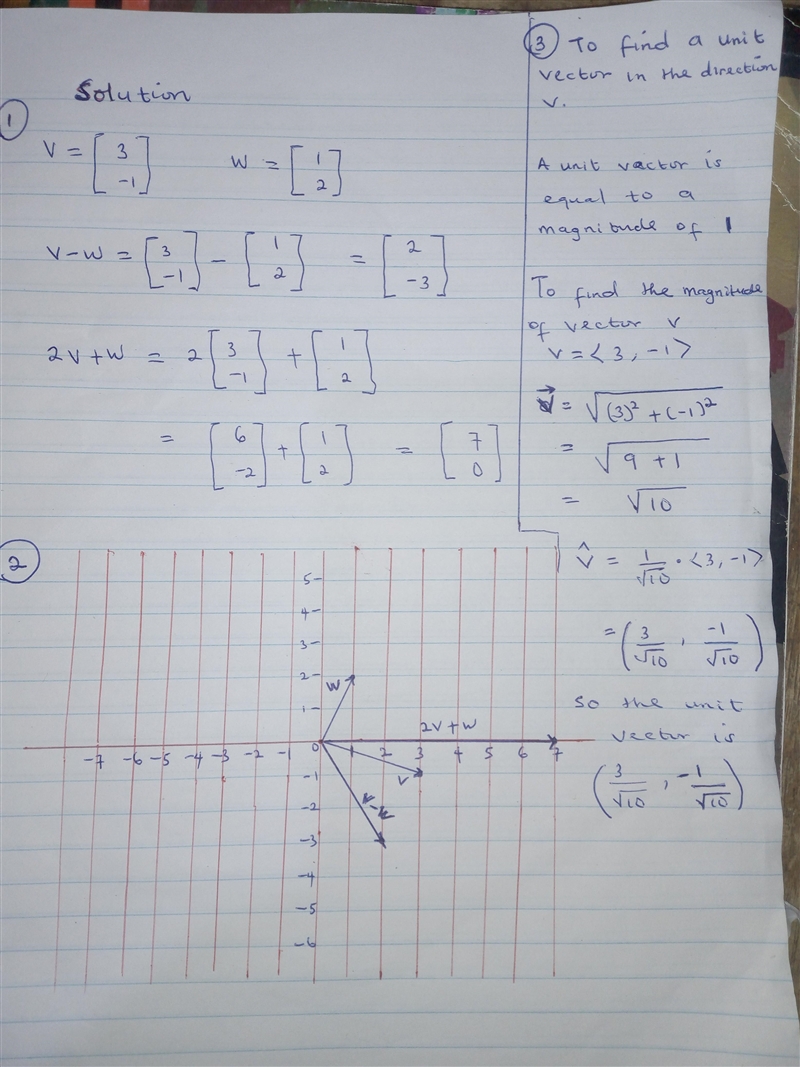 Solution
1
V = [3 -1] W = [1 2]
V-W = [3 -1] - [1 2] = [2 -3]
2V+W = 2[3 -1] + [1 2]
= [6 -2] + [1 2] = [7 0]
2
5
4
3
2
1
W
2V+W
-7 -6 -5 -4 -3 -2 -1 0 1 2 3 4 5 6 7
V
-1
V-W
-2
-3
-4
-5
-6
3 To find a unit
vector in the direction
V.
A unit vector is
equal to a
magnitude of 1
To find the magnitude
of vector V
V = <3, -1>
V⃗ = √(3)² + (-1)²
= √9 + 1
= √10
V̂ = 1/√10 • <3, -1>
= (3/√10 , -1/√10)
So the unit
vector is
(3/√10 , -1/√10)